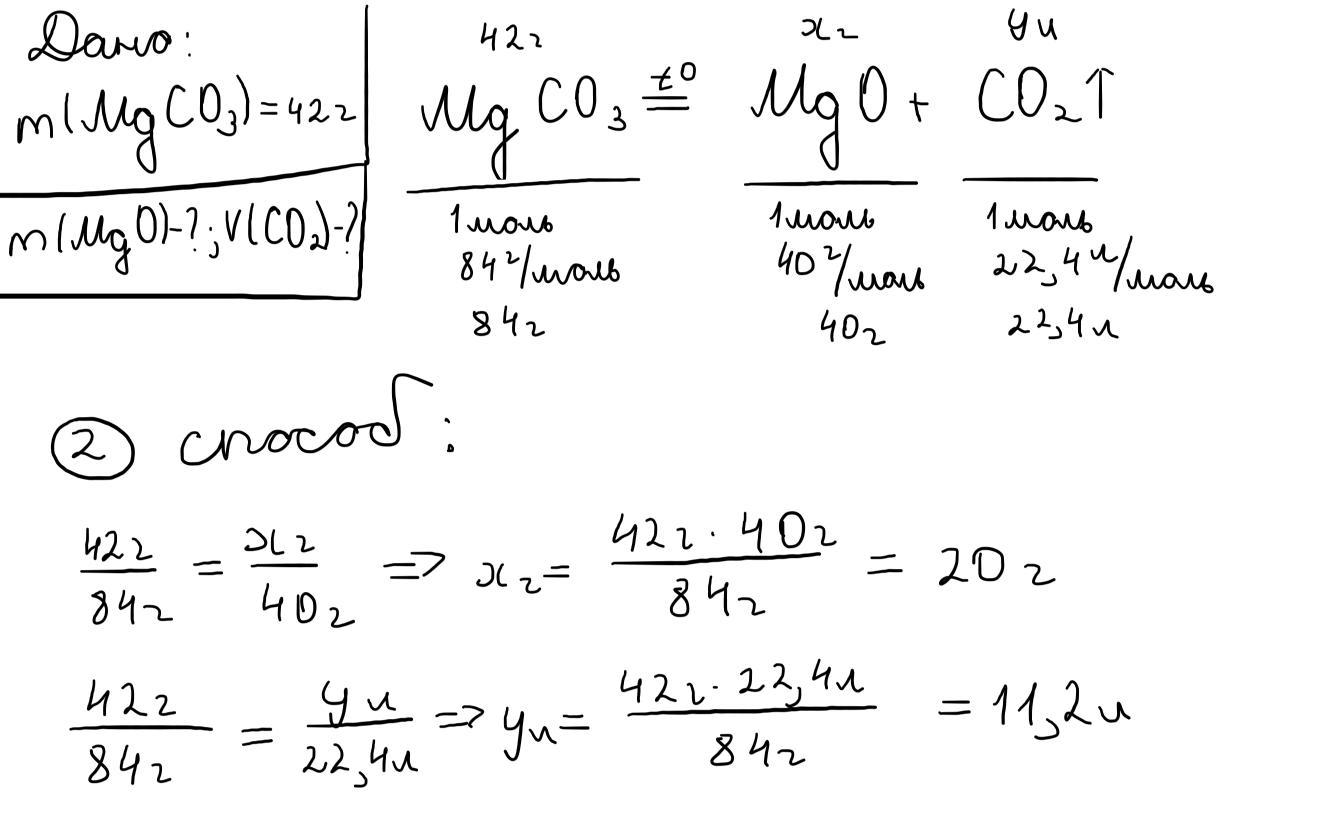 Дано:
m(MgCO₃)=42г
m(MgO)-?; V(CO₂)-?
42г xг yл
MgCO₃ =t⁰= MgO + CO₂↑
1моль 1моль 1моль
84г/моль 40г/моль 22,4л/моль
84г 40г 22,4л
② способ:
42г/84г = xг/40г => xг= 42г · 40г/84г = 20г
42г/84г = yл/22,4л => yл= 42г · 22,4л/84г = 11,2л